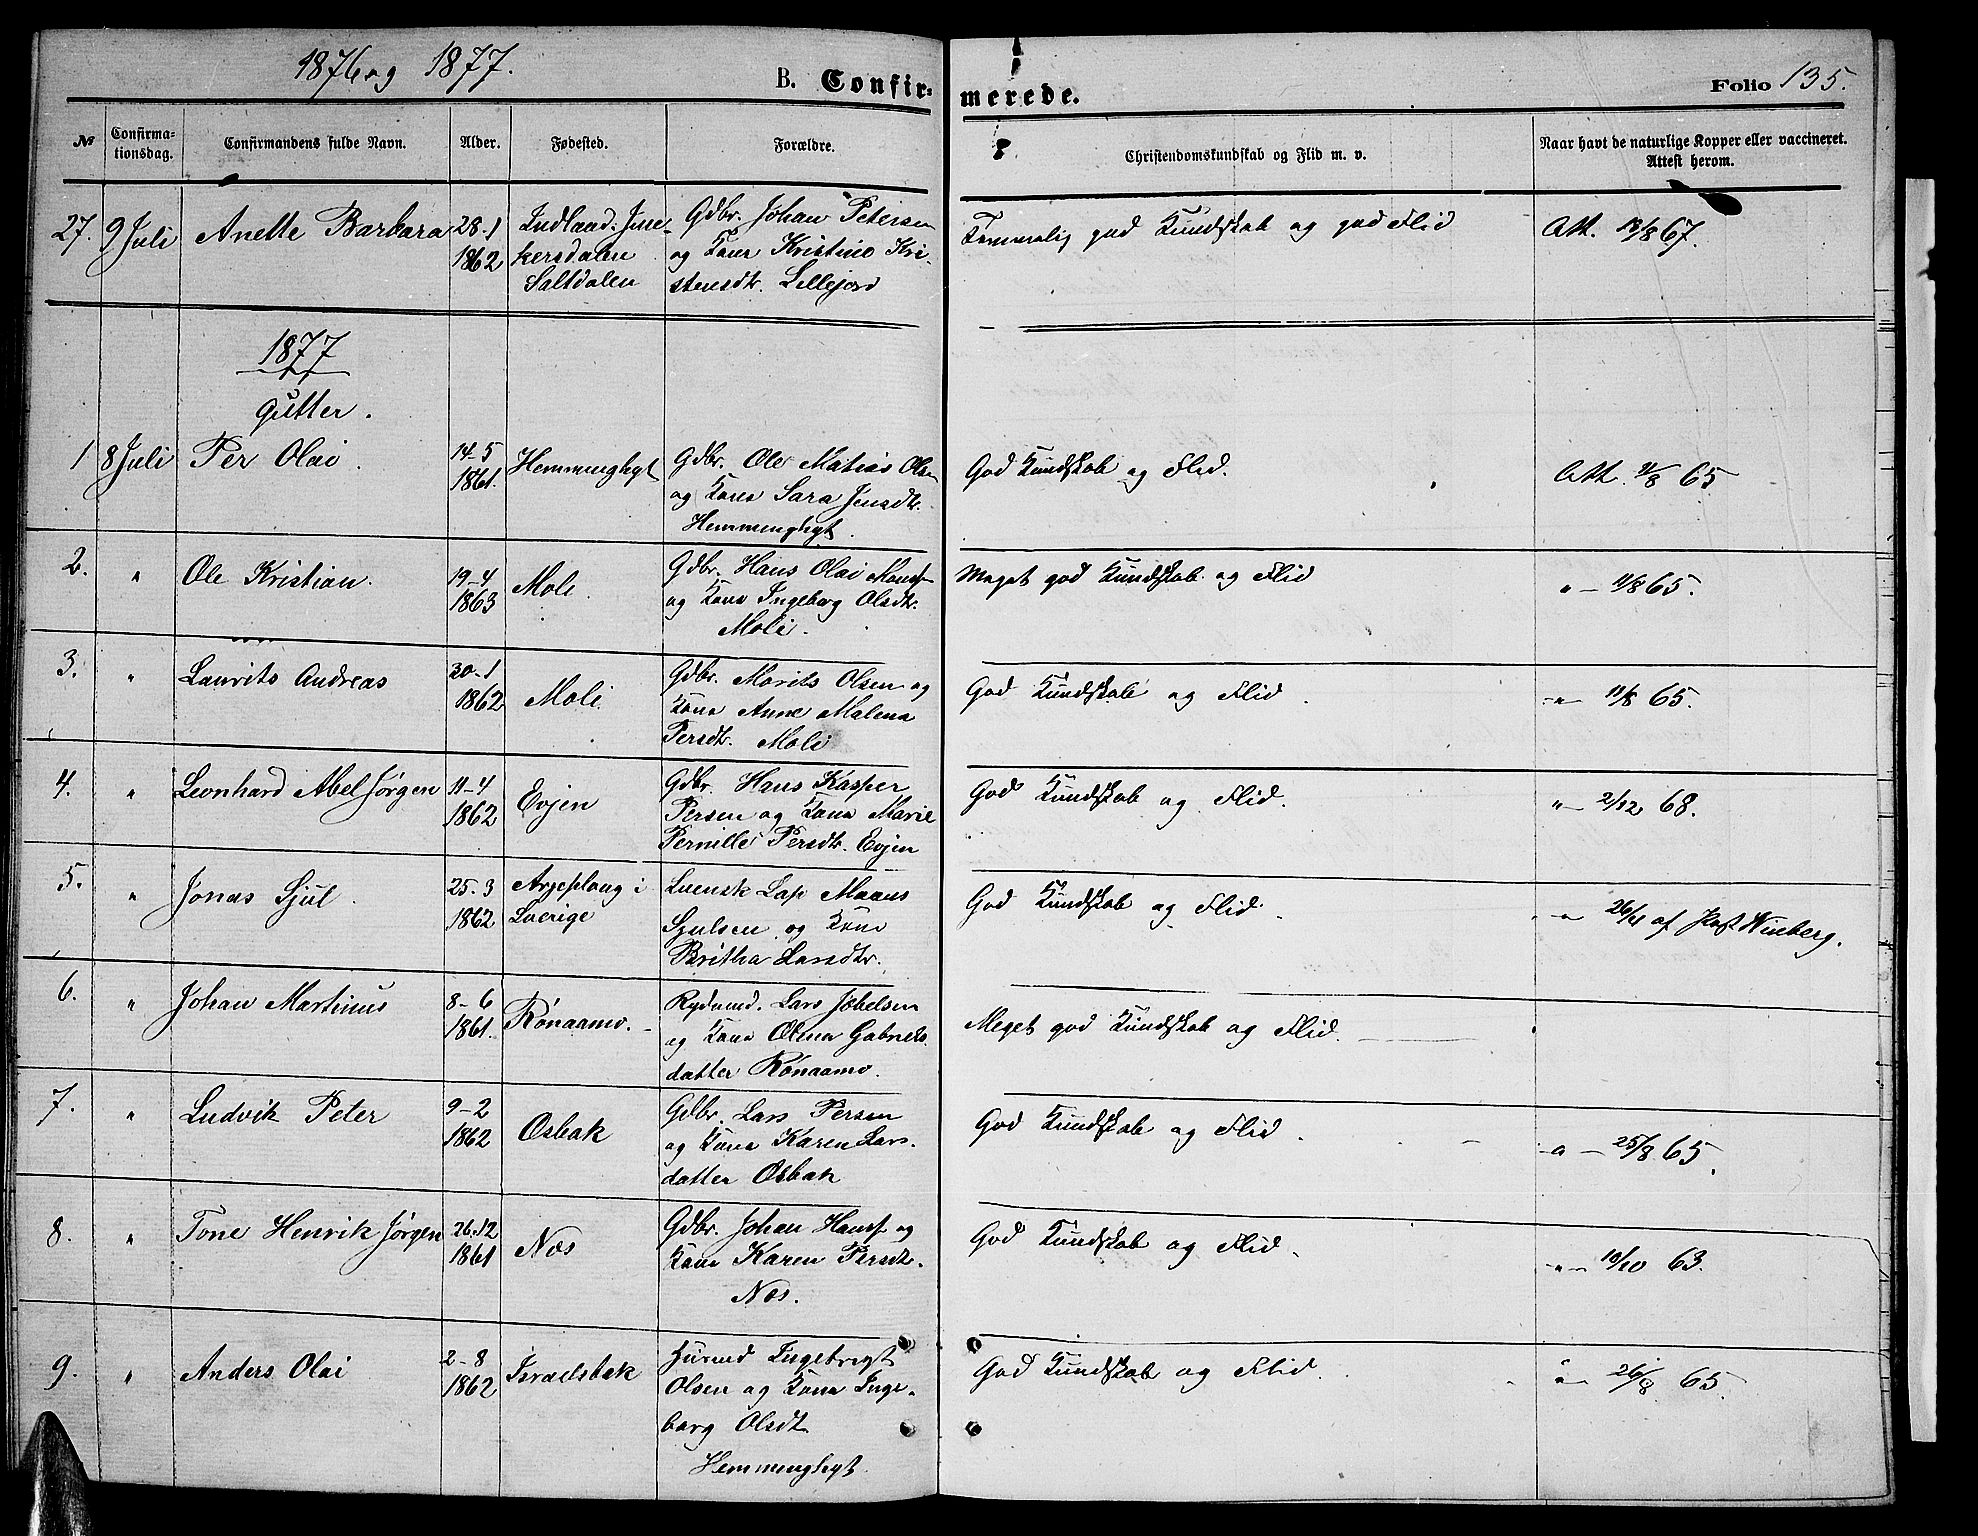 1876 og 1877.
B. Confirmerede.
Folio 135.
№ Confirmationsdag. Confirmandens fulde Navn. Alder. Fødested. Forældre. Christendomskundskab og Flid m. v. Naar havt de naturlige Kopper eller vaccineret. Attest herom.
27. 9 Juli Anette Barbara 28-1 1862
kersdalen
Saltdalen
Gdbr. Johan Petersen
og Kone Kristine Kri-
stensdtr. Lillejord
Temmelig god Kundskab og god Flid
Att. 67.
1877
Gutter.
1 8 Juli Per Olai 14-5 1861. Hemminghyt
Gdbr. Ole Matias Olsen
og Kone Sara Jensdtr.
Hemminghyt.
God Kundskab og Flid.
Att. 65
2. " Ole Kristian. 19-4 1863 Moli
Gdbr. Hans Olai Hanss.
og Kone Ingeborg Olsdtr.
Moli.
Meget god Kundskab og Flid
" - 11/8 65.
3. " Laurits Andreas 30-1 1862 Moli
Gdbr. Morits Olsen og
Kone Anne Malena
Persdtr. Moli
God Kundskab og Flid
-"- 11/8 65.
4. " Leonhard Abel Jørgen 11-4 1862 Evjen
Gdbr. Hans Kasper
Persen og Kone Marie
Pernille Persdtr. Evjen
God Kundskab og Flid.
"- 2/12 68.
5. " Jonas Sjul 25-3 1862
Arjeploug i
Sverige
Svensk Lap Maans
Sjulsen og Kone
Britha Larsdtr.
God Kundskab og Flid.
-"- af Past Winberg.
6. " Johan Martinus 8-6 1861. Rønaamo.
Rydnmd. Lars Jobelsen
og Kone Olena Gabriels-
datter Rønaamo.
Meget god Kundskab og Flid.
7. " Ludvik Peter 9-2 1862 Osbak
Gdbr. Lars Persen
og Kone Karen Lars-
datter Osbak
God Kundskab og Flid.
-"- 25/8 65.
8. " Tone Henrik Jørgen 26-12 1861 Næs
Gdbr. Johan Hanss. og
Kone Karen Persdtr.
Næs.
God Kundskab og Flid.
-"- 10/10 63.
9. " Anders Olai 2-8 1862 Israelsbak
Husmd Ingebrigt
Olsen og Kone Inge-
borg Olsdtr
Hemminghyt.
God Kundskab og Flid.
"- 26/8 65.